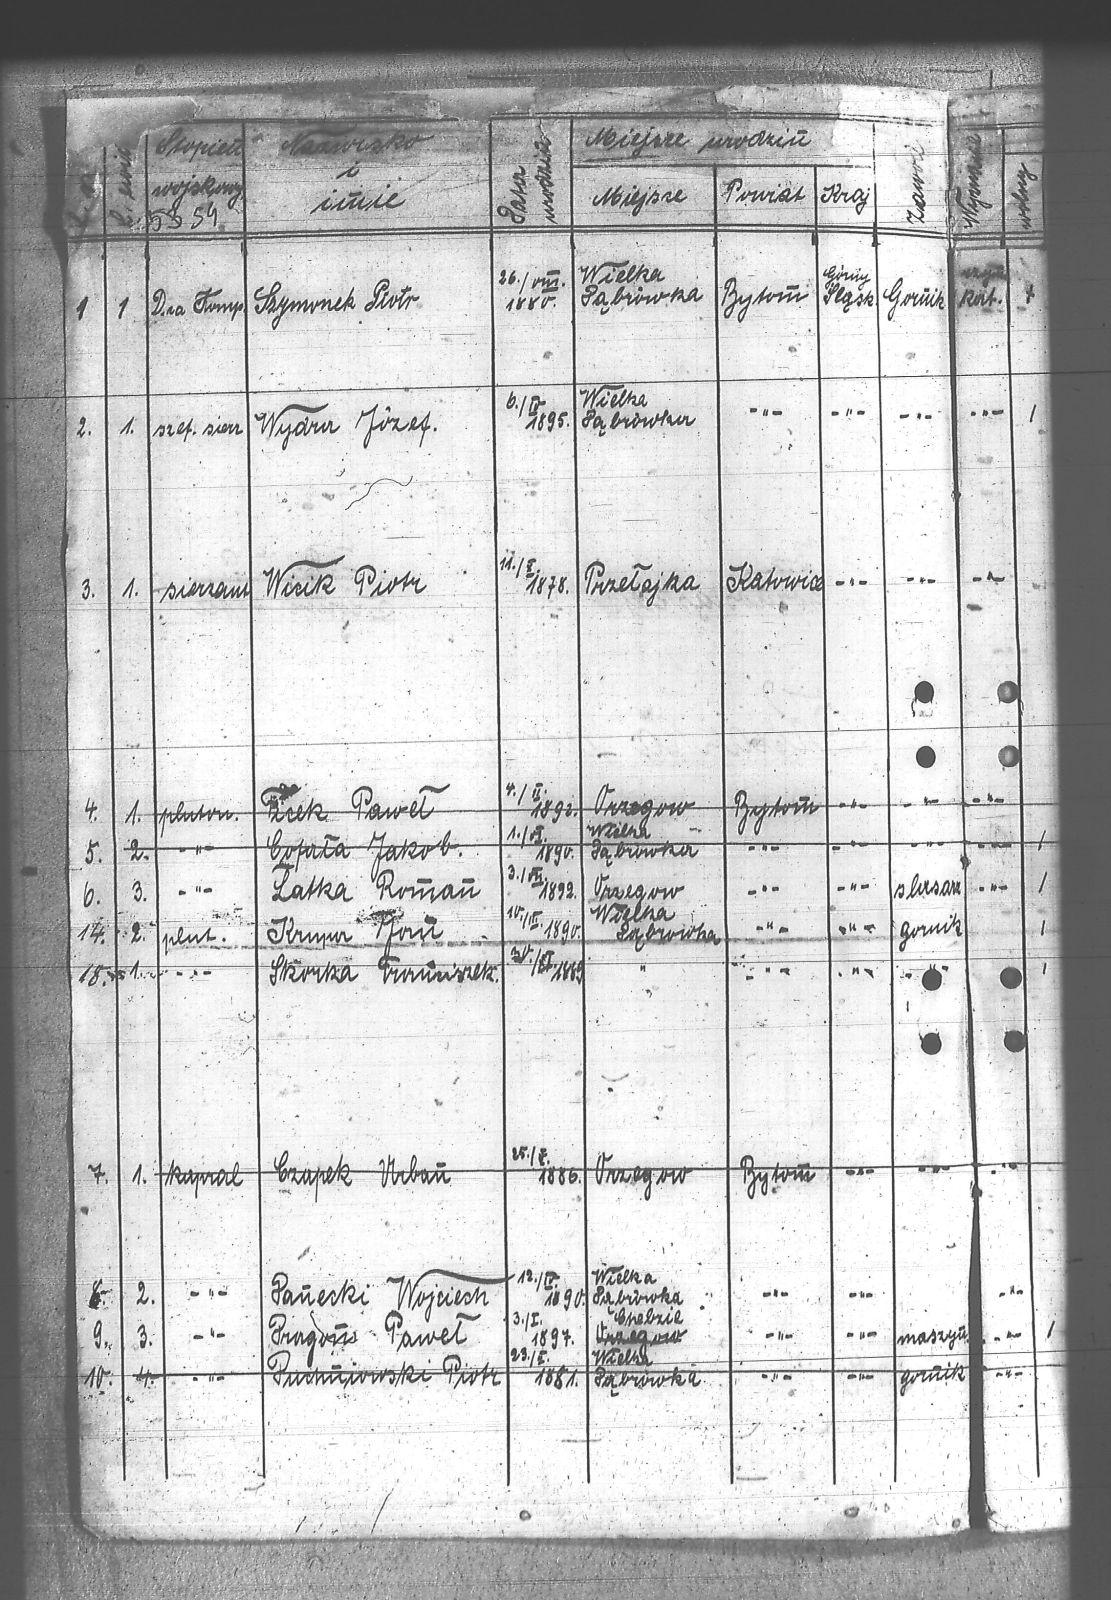 Stopień Nazwisko Data Miejsce urodzin Zawód Wyznanie wolny
wojskowy i urodzin Miejsce Powiat Kraj
imie
1 1 D-ca Komp. Szymonek Piotr 26./VIII. 1880. Wielka Dąbrówka Bytom Górny Śląsk Gornik rzym kat. +
2. 1. szef. sierż Wydra Józef. 6./IV 1895. Wielka Dąbrówka -"- -"- -"- -"- 1
3. 1. sierzant Wicik Piotr 11./X. 1878. Przełajka Katowice -"- -"- -"-
4. 1. pluton. Ficek Paweł 4./II. 1892. Orzegow Bytom -"- -"- -"-
5. 2. -"- Cofała Jakob. 1./VI. 1890. Wielka Dąbrówka -"- -"- -"- -"- 1
6. 3. -"- Łatka Roman 3./VIII. 1892. Orzegow -"- -"- slusarz -"- 1
14. 2. plut. Krupa Jan 10./II. 1890. Wielka Dąbrowka -"- -"- gornik 1
18. 1. -"- Skorka Franciszek. 30./XI 1889 " -"- -"- -"- 1
7. 1. kapral Czapek Urban 25./X. 1886. Orzegow Bytom -"- -"- -"-
8. 2. -"- Panecki Wojciech 12./IV. 1890. Wielka Dąbrówka -"- -"- -"-
9. 3. -"- Dragon Paweł 3./I. 1897. Chebzie Orzegow -"- -"- maszyn. -"- 1
10. 4. -"- Piotr 23./X. 1881. Wielka Dąbrówka -"- -"- gornik -"-